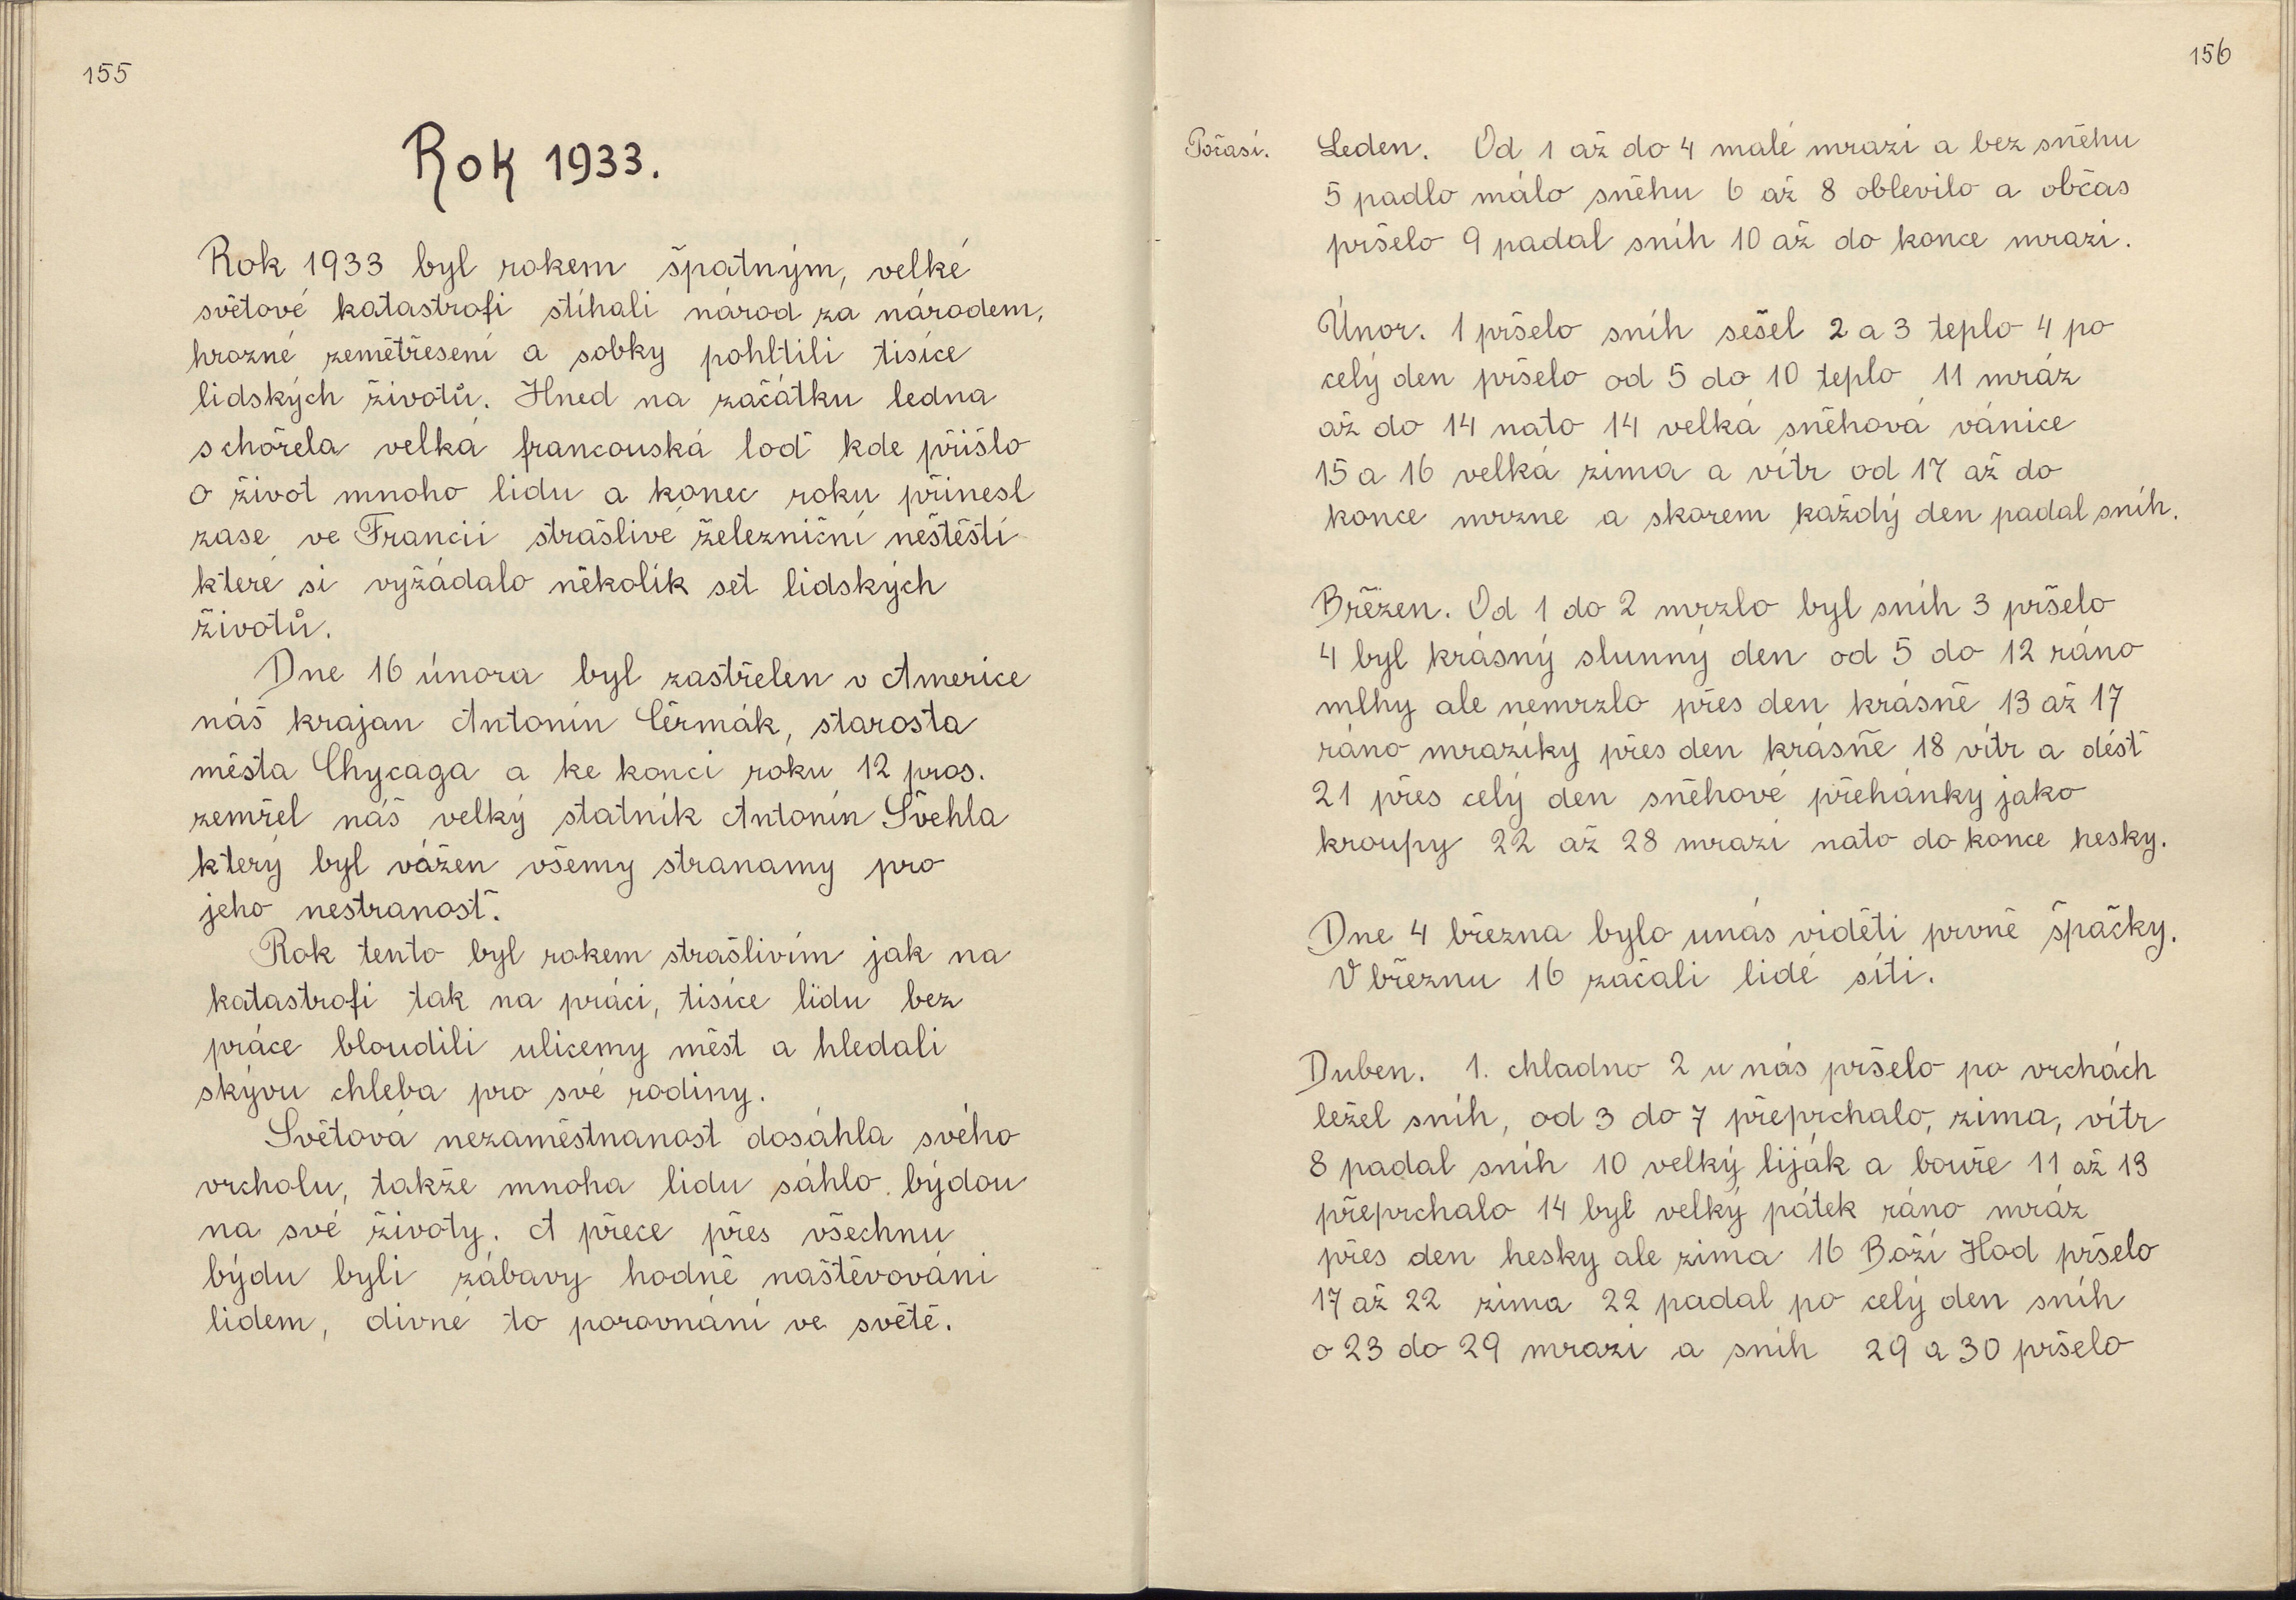 155
Rok 1933.
Rok 1933 byl rokem špatným, velké
světové katastrofi stíhali národ za národem,
hrozné zemětřesení a sobky pohltili tisíce
lidských životů. Hned na začátku ledna
schořela velká francouská loď kde přišlo
o život mnoho lidu a konec roku přinesl
zase ve Francii strašlivé železniční neštěstí
které si vyžádalo několik set lidských
životů.
Dne 16 února byl zastřelen v Americe
náš krajan Antonín Čermák, starosta
města Chycaga a ke konci roku 12 pros.
zemřel náš velký statník Antonín Švehla
který byl vážen všemy stranamy pro
jeho nestranosť.
Rok tento byl rokem strašlivím jak na
katastrofi tak na práci, tisíce lidu bez
práce bloudili ulicemy měst a hledali
skývu chleba pro své rodiny.
Světová nezaměstnanost dosáhla svého
vrcholu, takže mnoha lidu sáhlo býdou
na své životy. A přece přes všechnu
býdu byli zábavy hodně naštěvováni
lidem, divné to porovnání ve světě.
156
Počasí.
Leden. Od 1 až do 4 malé mrazi a bez sněhu
5 padlo málo sněhu 6 až 8 oblevilo a občas
pršelo 9 padal sníh 10 až do konce mrazi.
Únor. 1 pršelo sníh sešel 2 a 3 teplo 4 po
celý den pršelo od 5 do 10 teplo 11 mráz
až do 14 nato 14 velká sněhová vánice
15 a 16 velká zima a vítr od 17 až do
konce mrzne a skorem každý den padal sníh.
Březen. Od 1 do 2 mrzlo byl sníh 3 pršelo
4 byl krásný slunný den od 5 do 12 ráno
mlhy ale nemrzlo přes den krásně 13 až 17
ráno mrazíky přes den krásňe 18 vítr a déšť
21 přes celý den sněhové přehánky jako
kroupy 22 až 28 mrazi nato do konce hesky.
Dne 4 března bylo unás viděti prvně špačky.
V březnu 16 začali lidé síti.
Duben. 1. chladno 2 u nás pršelo po vrchách
ležel sníh, od 3 do 7 přeprchalo, zima, vítr
8 padal sníh 10 velký liják a bouře 11 až 13
přeprchalo 14 byl velký pátek ráno mráz
přes den hesky ale zima 16 Boží Hod pršelo
17 až 22 zima 22 padal po celý den sníh
o 23 do 29 mrazi a sníh 29 a 30 pršelo